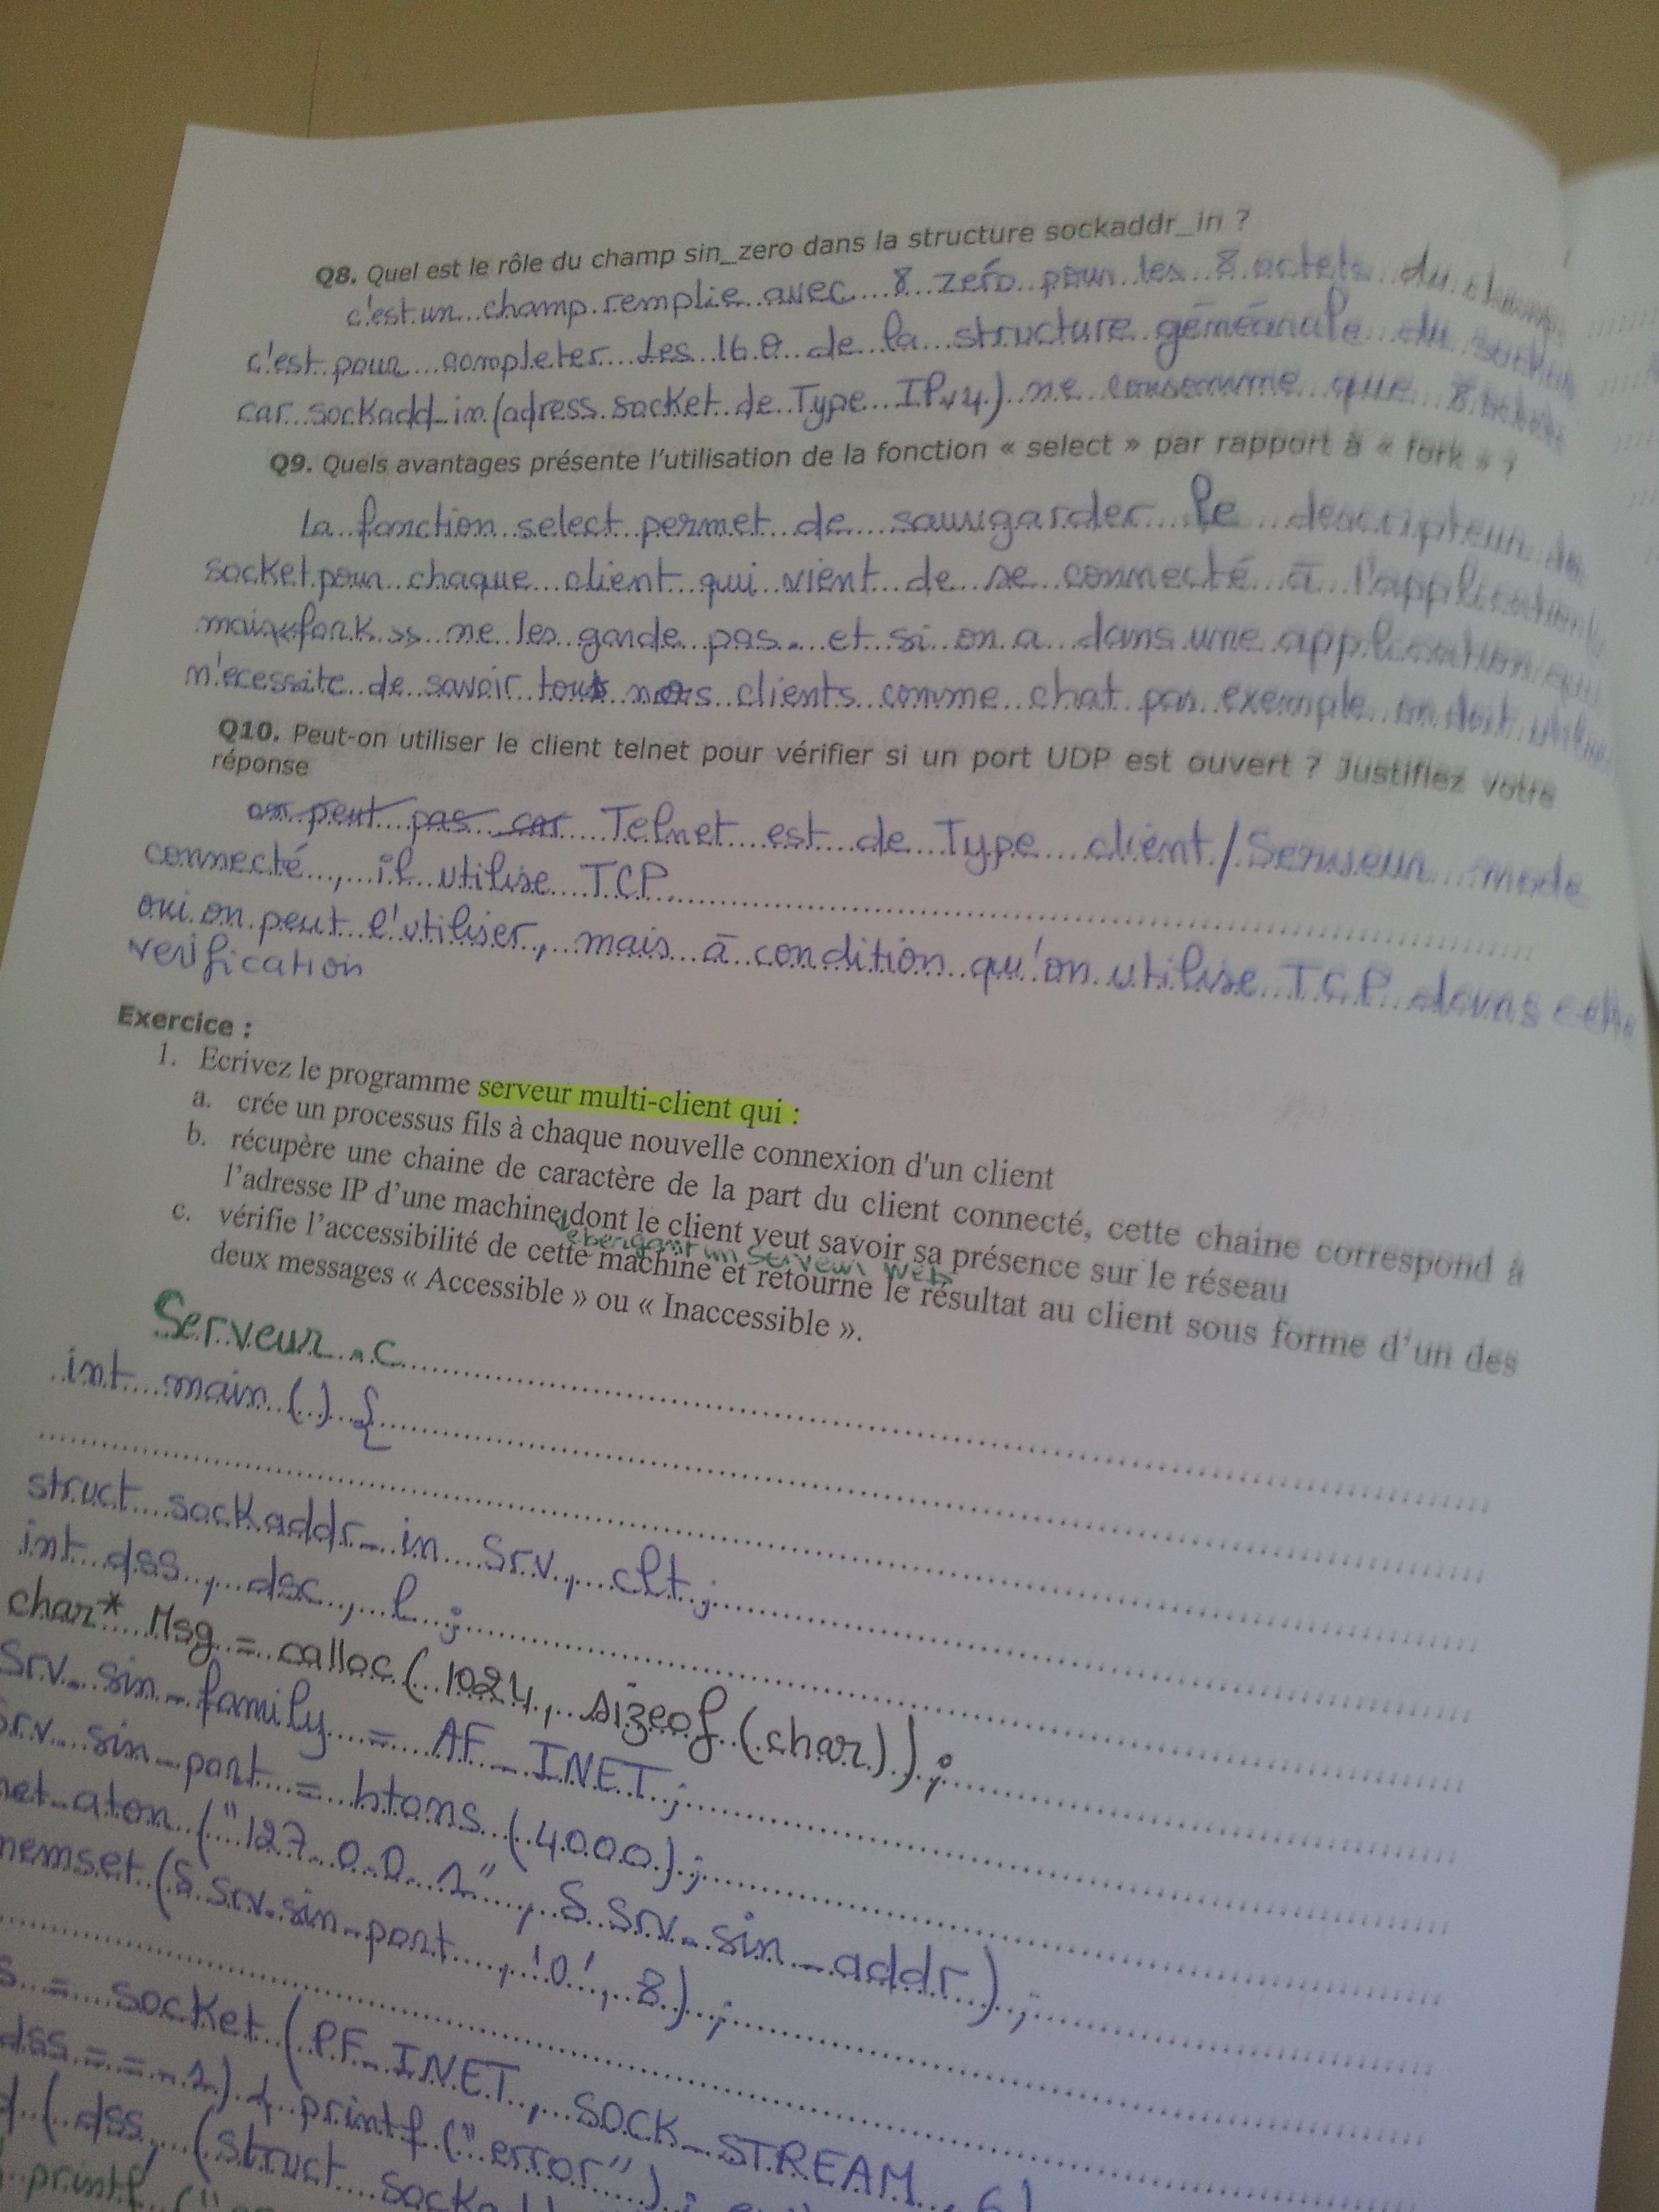 Q8. Quel est le rôle du champ sin_zero dans la structure sockaddr_in ?
c'est un champ remplie avec 8 zero pour les 8 octets du champ
c'est pour completer les 16 O de la structure du
car sockadd_in (adress socket de Type IPv4) ne consomme que 8
Q9. Quels avantages présente l'utilisation de la fonction « select » par rapport à « fork » ?
La fonction select permet de sauvgarder le descripteur de
socket pour chaque client qui vient de se connecté à l'application
mais « fork » ne les garde pas. et si on a dans une application qui
n'ecessite de savoir tous nos clients comme chat par exemple on doit
Q10. Peut-on utiliser le client telnet pour vérifier si un port UDP est ouvert ? Justifiez votre
réponse
on peut pas car Telnet est de Type client/Serveur mode
connecté, il utilise TCP
oui on peut l'utiliser, mais à condition qu'on utilise TCP dans cette
verification
Exercice :
1. Ecrivez le programme serveur multi-client qui :
a. crée un processus fils à chaque nouvelle connexion d'un client
b. récupère une chaine de caractère de la part du client connecté, cette chaine correspond à
l'adresse IP d'une machine dont le client veut savoir sa présence sur le réseau
un Serveur Web
c. vérifie l'accessibilité de cette machine et retourne le résultat au client sous forme d'un des
deux messages « Accessible » ou « Inaccessible ».
Serveur.c
int main () {
struct sockaddr_in Srv, clt;
int dss, dsc, l;
char* Msg = calloc (1024, sizeof (char));
Srv. sin_family = AF_INET;
Srv. sin_port = htons (4000);
net_aton ("127.0.0.1", & Srv. sin_addr);
memset (& Srv. sin_port, '0', 8);
s = socket (PF_INET, SOCK_STREAM, 6)
dss == -1) { printf ("error");
(dss, (struct
printf ("